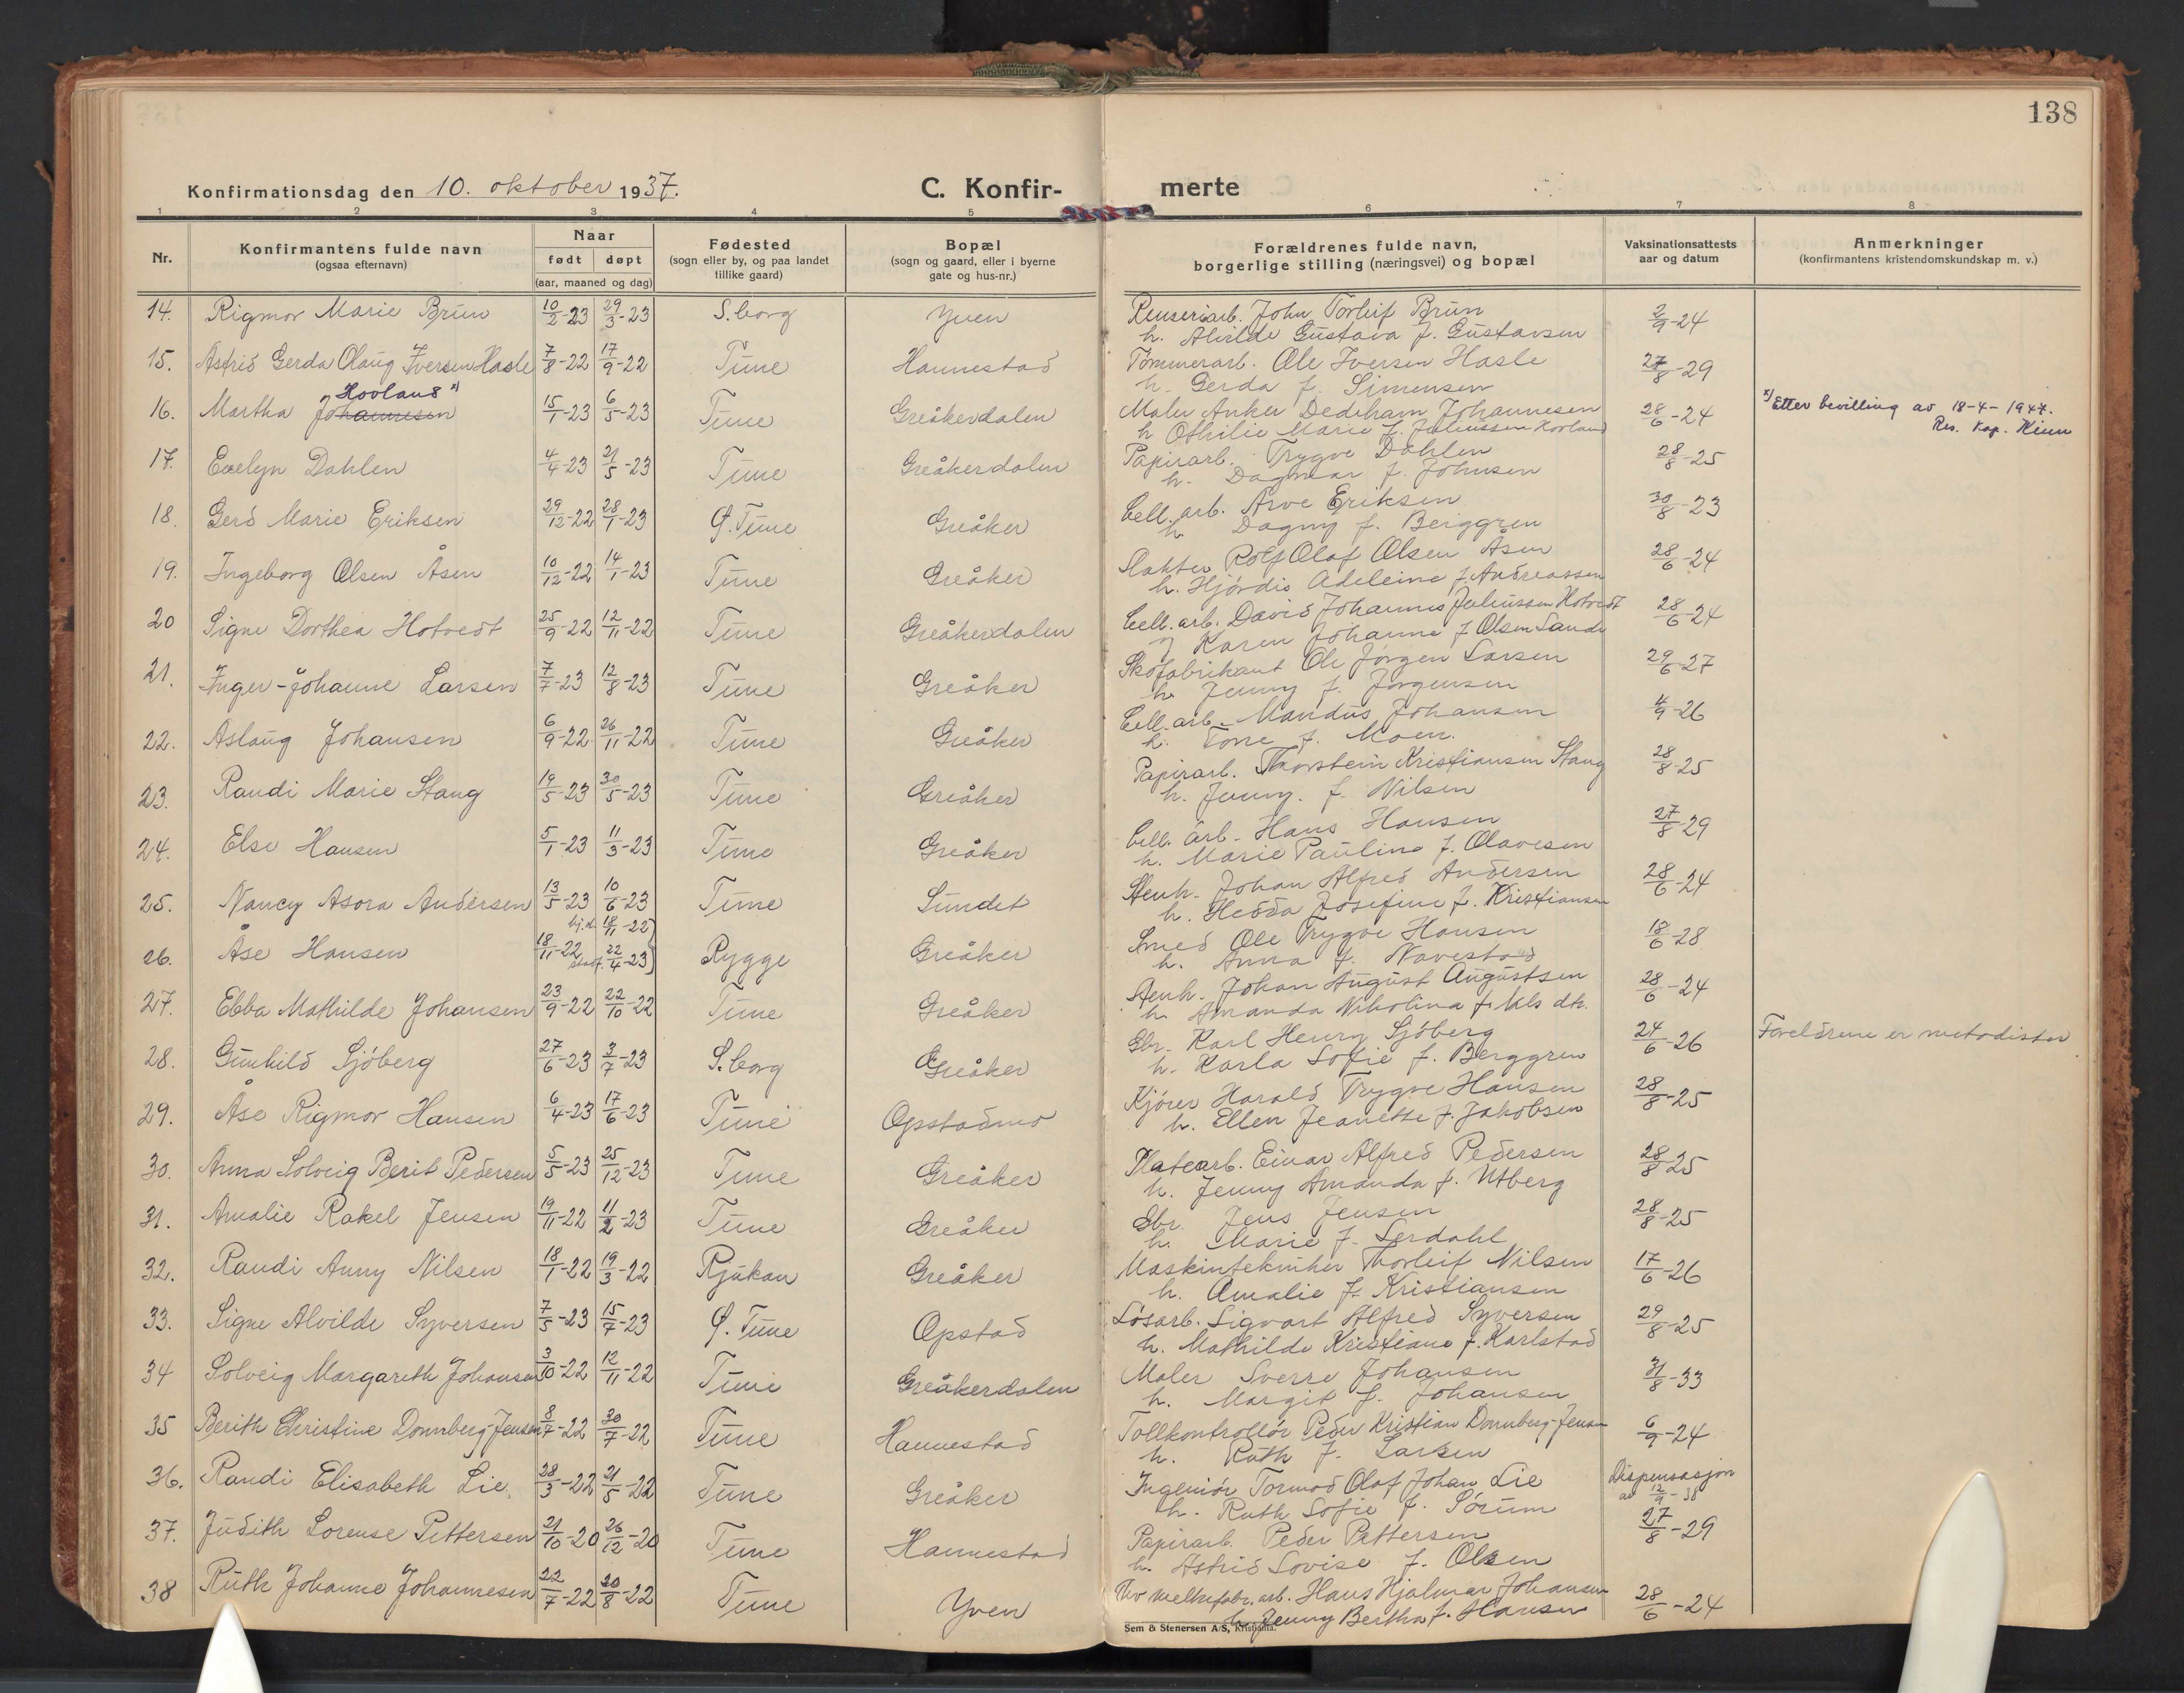 138
Konfirmationsdag den 10. oktober 1937.
C. Konfir- merte
1 2 3 4 5 6 7 8
Nr.
Konfirmantens fulde navn
(ogsaa efternavn)
Naar
født døpt
(aar, maaned og dag)
Fødested
(sogn eller by, og paa landet
tillike gaard)
Bopæl
(sogn og gaard, eller i byerne
gate og hus-nr.)
Forældrenes fulde navn,
borgerlige stilling (næringsvei) og bopæl
Vaksinationsattests
aar og datum
Anmerkninger
(konfirmantens kristendomskundskap m. v.)
14. Rigmor Marie Brun 10/2-23 29/3-23 S.borg Yven Renseriarb. John Torleif Brun 2/9-24
h. Alvilde Gustava f. Gustavsen
15. Astrid Gerda Olaug Iversen Hasle 7/8-22 17/9-22 Tune Hannestad Tømmerarb. Ole Iversen Hasle 27/8-29
h. Gerda f. Simensen
Hovland x)
16. Martha Johannesen 15/1-23 6/5-23 Tune Greåkerdalen Maler Anker Dedeham Johannesen 28/6-24 x) Etter bevilling av 18-4-1947.
h Othilie Marie f. Juliussen Hovland Res. kap.
17. Evelyn Dahlen 4/4-23 21/5-23 Tune Greåkerdalen Papirarb. Trygve Dahlen 28/8-25
h. Dagmar f. Johnsen
18. Gerd Marie Eriksen 29/12-22 28/1-23 Ø. Tune Greåker Cell. arb. Arve Eriksen 30/8-23
h Dagny f. Berggren
19. Ingeborg Olsen Åsen 10/12-22 14/1-23 Tune Greåker Slakter Rolf Olaf Olsen Åsen 28/6-24
h. Hjørdis Adeleine f. Andreassen
20 Signe Dorthea Hotvedt 25/9-22 12/11-22 Tune Greåkerdalen Cell. arb. David Johannes Juliussen Hotvedt 28/6-24
Karen Johanne f Olsen Sande
21. Inger-Johanne Larsen 7/7-23 12/8-23 Tune Greåker Skofabrikant Ole Jørgen Larsen 29/6-27
h. Jenny f. Jørgensen
22. Aslaug Johansen 6/9-22 26/11-22 Tune Greåker Cell. arb. Mandus Johansen 4/9-26
h. Tone f. Moen.
23. Randi Marie Stang 19/5-23 30/5-23 Tune Greåker Papirarb. Thorstein Kristiansen Stang 28/8-25
h. Jenny. f. Nilsen
24. Else Hansen 5/1-23 11/3-23 Tune Greåker Cell. arb. Hans Hansen 27/8-29
h. Marie Pauline f. Olavesen
25. Nancy Asora Andersen 13/5-23 10/6-23 Tune Sundet Stenh. Johan Alfred Andersen 28/6-24
h. Hedda Josefine f. Kristiansen
hj.d. 18/11-22
26. Åse Hansen 18/11-22 stadf. 22/4-23 Rygge Greåker Smed Ole Trygve Hansen 18/6-28
h. Anna f. Navestad
27. Ebba Mathilde Johansen 23/9-22 22/10-22 Tune Greåker Stenh. Johan August Augustsen 28/6-24
h. Amanda Nikolina f. Nils dtr.
28. Gunhild Sjöberg 27/6-23 3/7-23 S.borg Greåker Gbr. Karl Henry Sjöberg 24/6-26 Foreldrene er metodister
h. Karla Sofie f. Berggren
29. Åse Rigmor Hansen 6/4-23 17/6-23 Tune Opstadmo Kjører Harald Trygve Hansen 28/8-25
h. Ellen Jeanette f. Jakobsen
30. Anna Solveig Berit Pedersen 5/5-23 25/12-23 Tune Greåker Platearb. Einar Alfred Pedersen 28/8-25
h. Jenny Amanda f. Utberg
31. Amalie Rakel Jensen 19/11-22 11/2-23 Tune Greåker Gbr. Jens Jensen 28/8-25
h. Marie f. Serdahl
32. Randi Anny Nilsen 18/1-22 19/3-22 Rjukan Greåker Maskintekniker Thorleif Nilsen 17/6-26
h. Amalie f. Kristiansen
33. Signe Alvilde Syversen 7/5-23 15/7-23 Ø. Tune Opstad Løsarb. Sigvart Alfred Syversen 29/8-25
h. Mathilde Kristiane f. Karlstad
34 Solveig Margareth Johansen 3/10-22 12/11-22 Tune Greåkerdalen Maler Sverre Johansen 31/8-33
h. Margit f. Johansen
35 Berith Christine Donnberg-Jensen 8/7-22 30/7-22 Tune Hannestad Tollkontrollør Peder Kristian Donnberg-Jensen 6/9-24
h. Ruth f. Larsen
36. Randi Elisabeth Lie 28/3-22 21/5-22 Tune Greåker Ingeniør Tormod Olaf Johan Lie Dispensasjon
h. Ruth Sofie f. Sørum av 12/9-38
37. Judith Lorense Pettersen 21/10-20 26/12-20 Tune Hannestad Papirarb. Peder Pettersen 27/8-29
h. Astrid Lovise f. Olsen
38 Ruth Johanne Johannesen 22/7-22 20/8-22 Tune Yven melkefabr. arb. Hans Hjalmar Johansen 28/6-24
h. Jenny Bertha f. Hansen
Sem & Stenersen A/S, Kristiania.